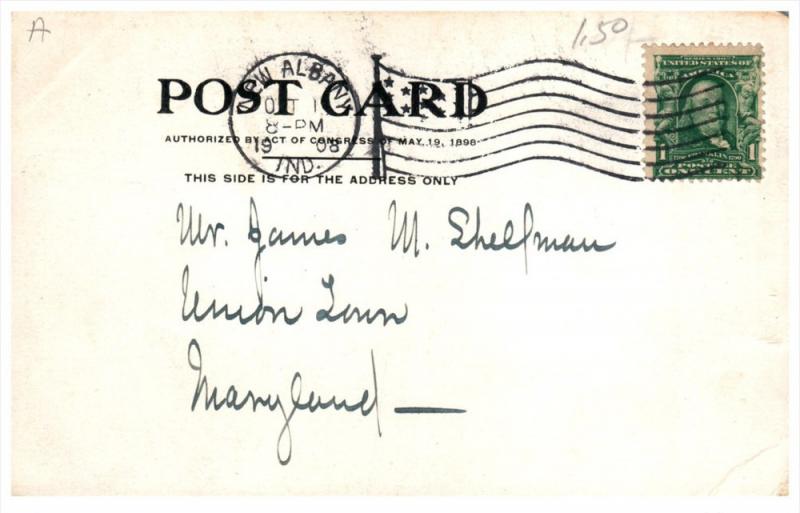 A
1.50
POST CARD
NEW ALBANY
OCT 1
8-PM
19 08
IND.
AUTHORIZED BY ACT OF CONGRESS OF MAY. 19, 1898
THIS SIDE IS FOR THE ADDRESS ONLY
SERIES 1902
UNITED STATES OF
AMERICA
FRANKLIN
POSTAGE
1
ONE CENT
Mr. James M. Shellman
Union Town
Maryland —